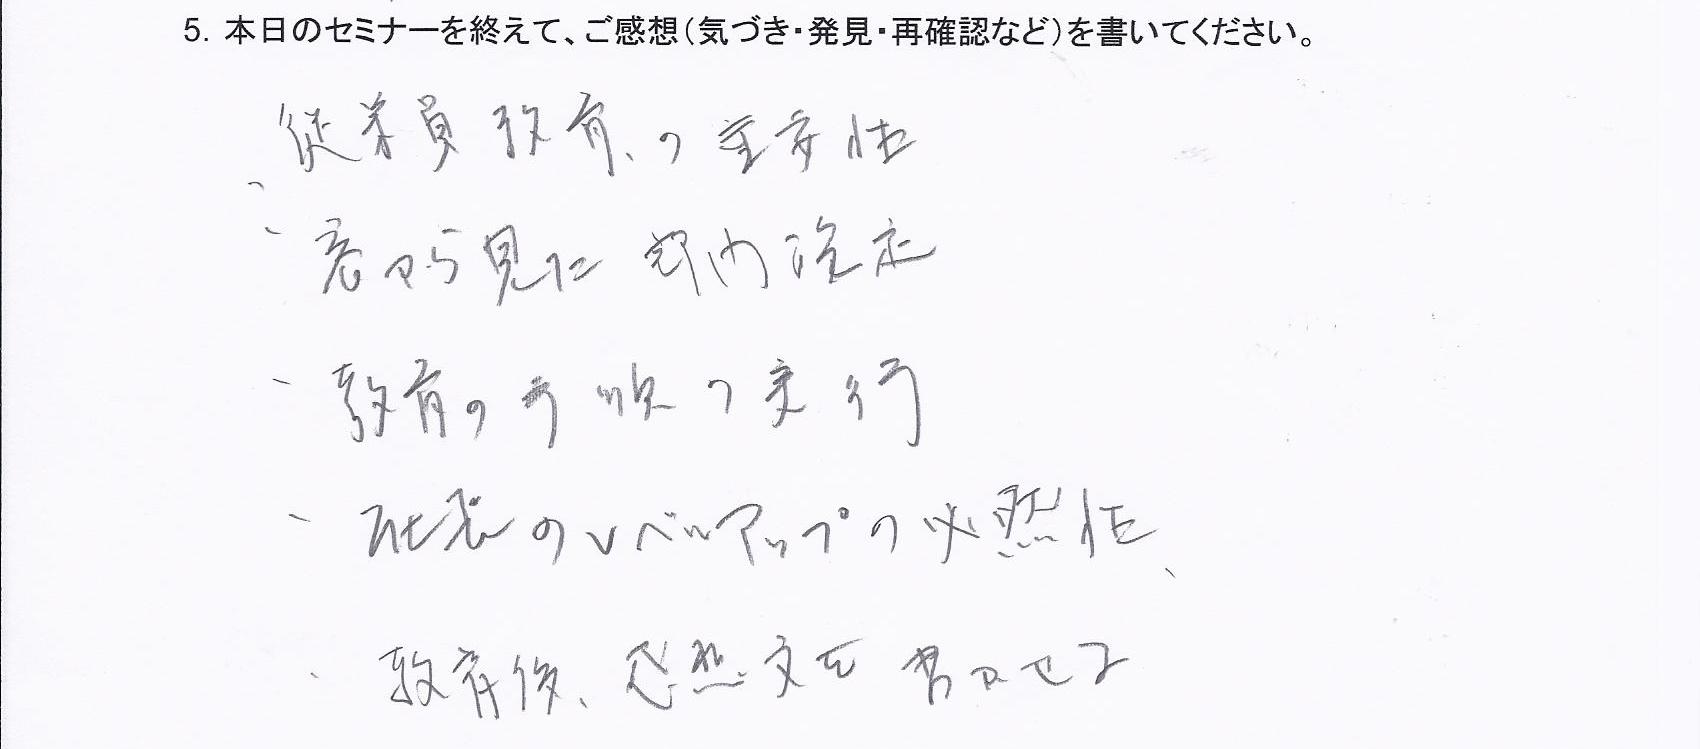 5. 本日のセミナーを終えて、ご感想（気づき・発見・再確認など）を書いてください。
従業員教育、の重要性
、客から見た 室内設定
、教育の手順の実行
、社長のレベルアップの必然性、
・教育後、感想文を書かせる